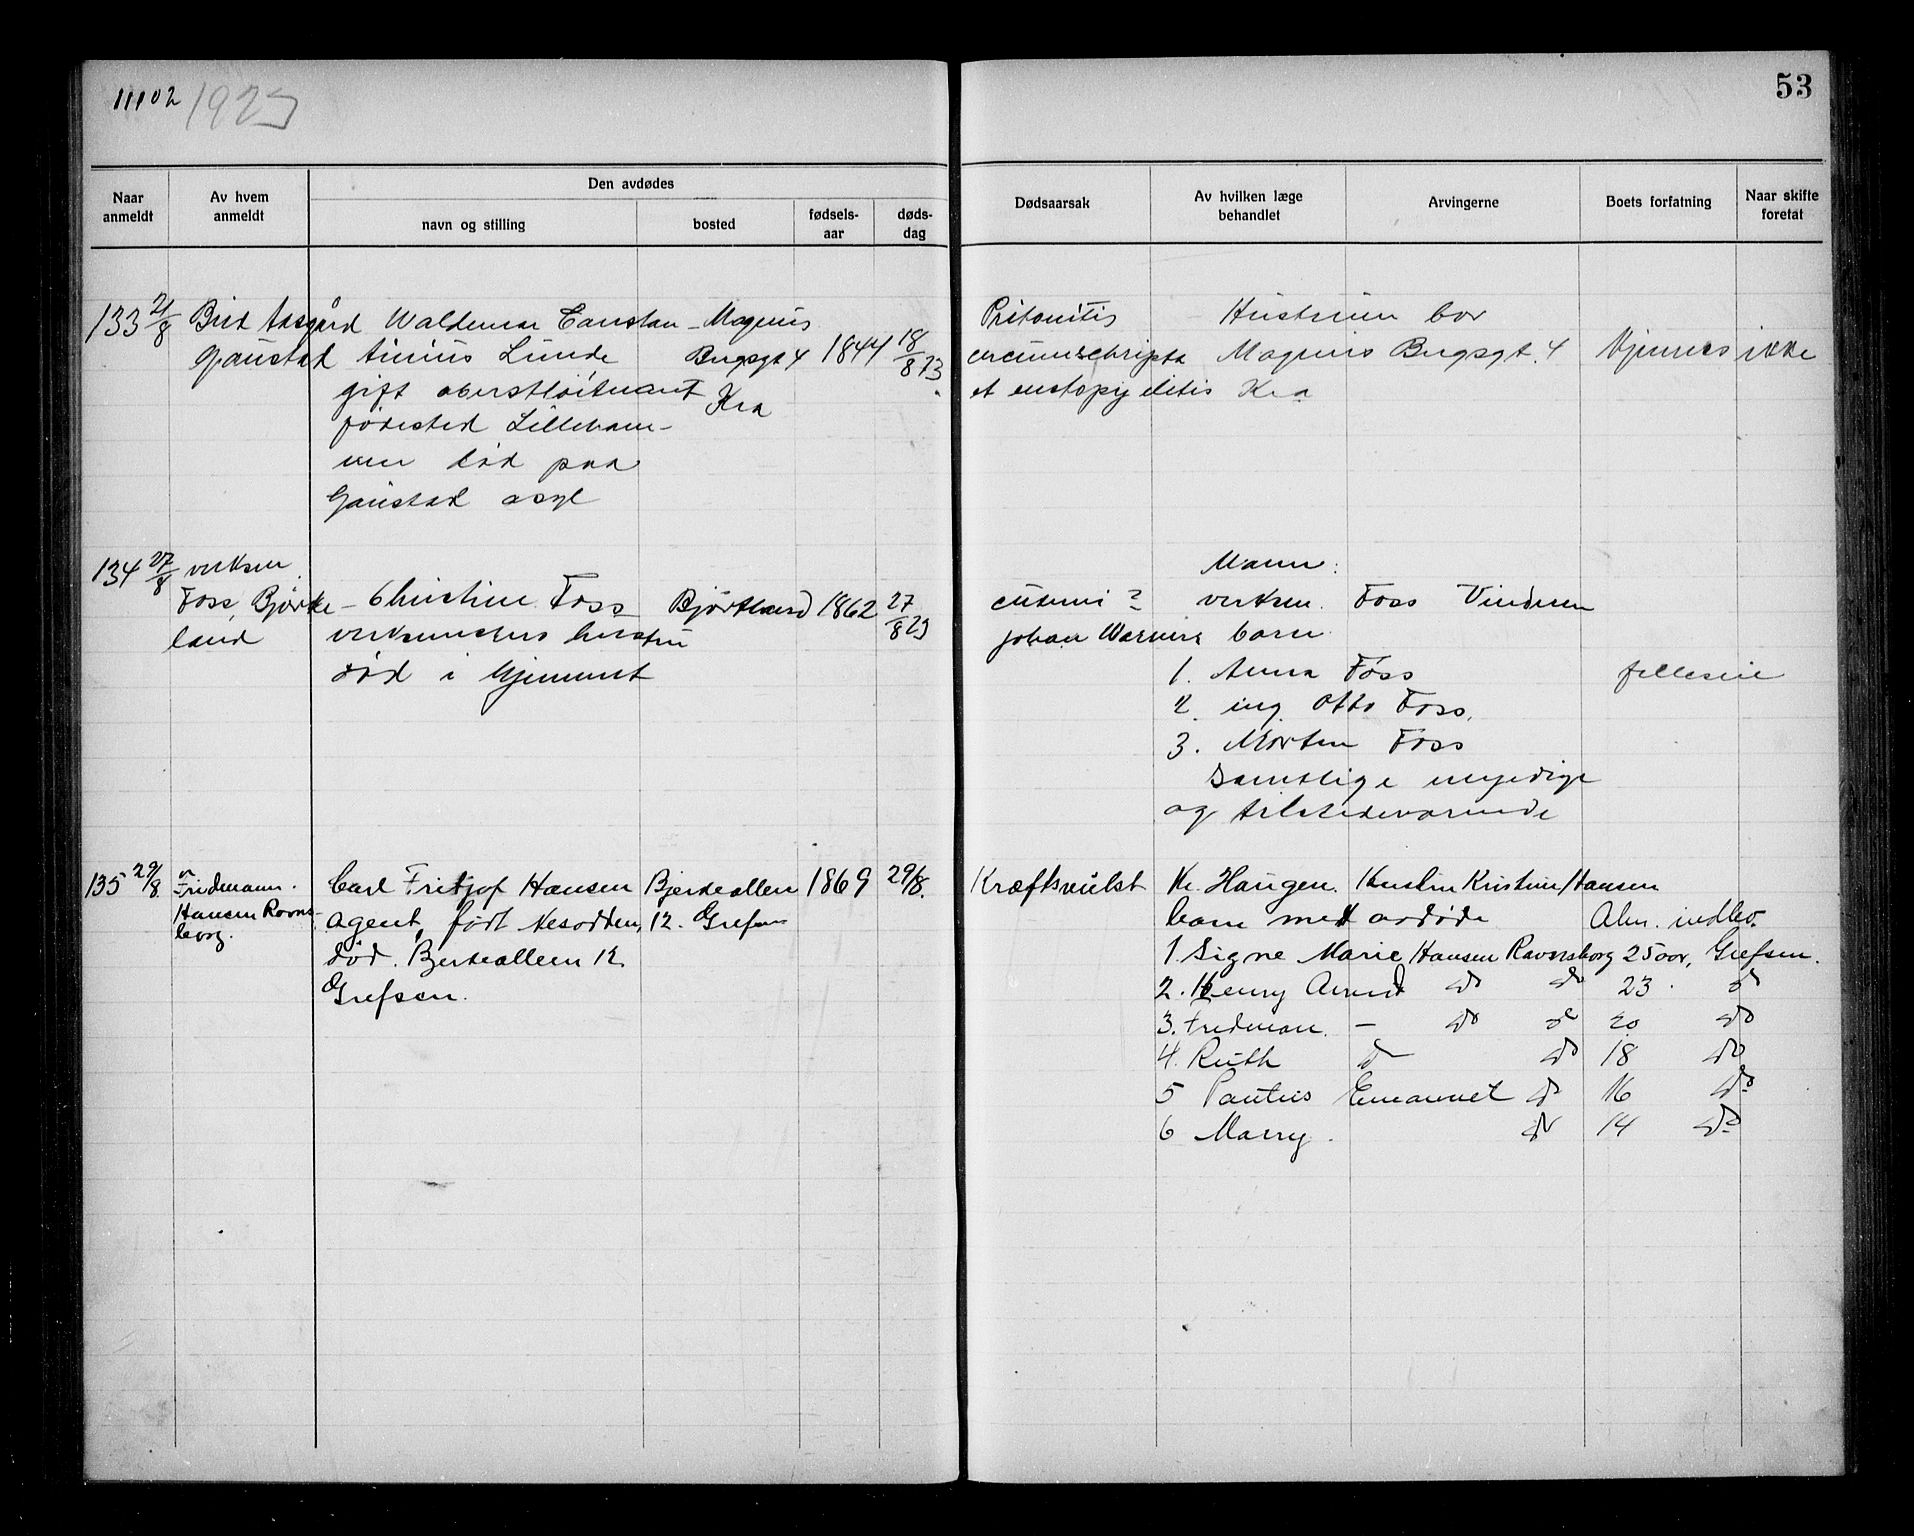 11102 1923
53
Naar anmeldt
Av hvem anmeldt
Den avdødes
navn og stilling
bosted
fødsels-aar
døds-dag
Dødsaarsak
Av hvilken læge behandlet
Arvingerne
Boets forfatning
Naar skifte foretat
133 21/8 Aasgård Waldemar Constan- Magnus
Gaustad tinius Lunde Bugsgt 4 1844 18/8 23
gift oberstløitnant Kra
fødested Lilleham-
mer død paa
Gaustad asyl
Pritonitis Hustruen bor
circumschripta Magnus Bugsgt. 4 ikke
et Kra
134 27/8 verksm.
Foss, Bjørke- Christine Foss 1862 27/8 23
land verksmesters hustru
død i hjemmet
Mann:
? verksm. Foss Vinderen
Johan barn
1. Anna Foss
2. ing. Otto Foss.
3. Morten Foss
samtlige myndige
og tilstedeværende
135 29/8 Fridmann. Carl Fritjof Hansen Bjerkealleen 1869 29/8.
Hansen Ravns- agent, født Nesodden, 12. Grefsen
borg. død. Bjerkealleen 12
Grefsen.
Kræftsvulst Haugen. Kristine Hansen
barn med avdøde Alm. indbo.
1. Signe Marie Hansen Ravnsborg 25 aar, Grefsen.
2. Henry do do 23. do
3. Fredman. - do do 20 do
4. Ruth do do 18 do
5 do 16 do
6 Marry. do 14 do